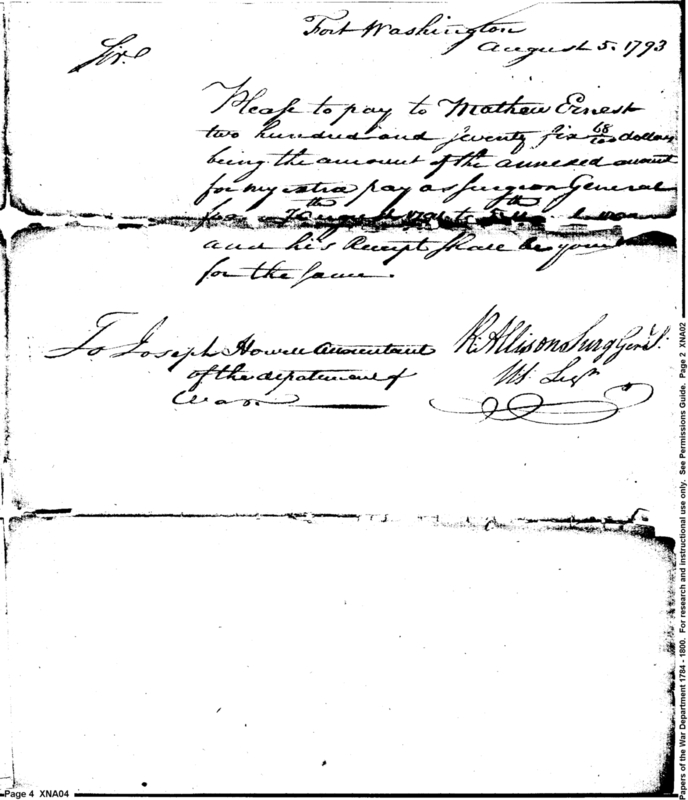 Fort Washington
August 5. 1793
Sir.
Please to pay to Mathew Ernest
two hundred and seventy six 68/100 dollars
being the amount of the annexed account
for my extra pay as Surgeon General
from
and his Receipt shall be your
for the same.
To Joseph Howell Accountant
of the depatement of
War
R. Allison Surg Genl.
US. Legn
Page 4 XNA04
Papers of the War Department 1784 - 1800. For research and instructional use only. See Permissions Guide. Page 2 XNA02